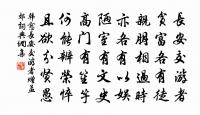 長安交游者
貧富各有徒
親朋相過時
亦各有以娛
陋室有文史
高門有笙竽
何能辨榮悴
且欲分賢愚
韓愈長安交游者贈孟
郊詞典網集